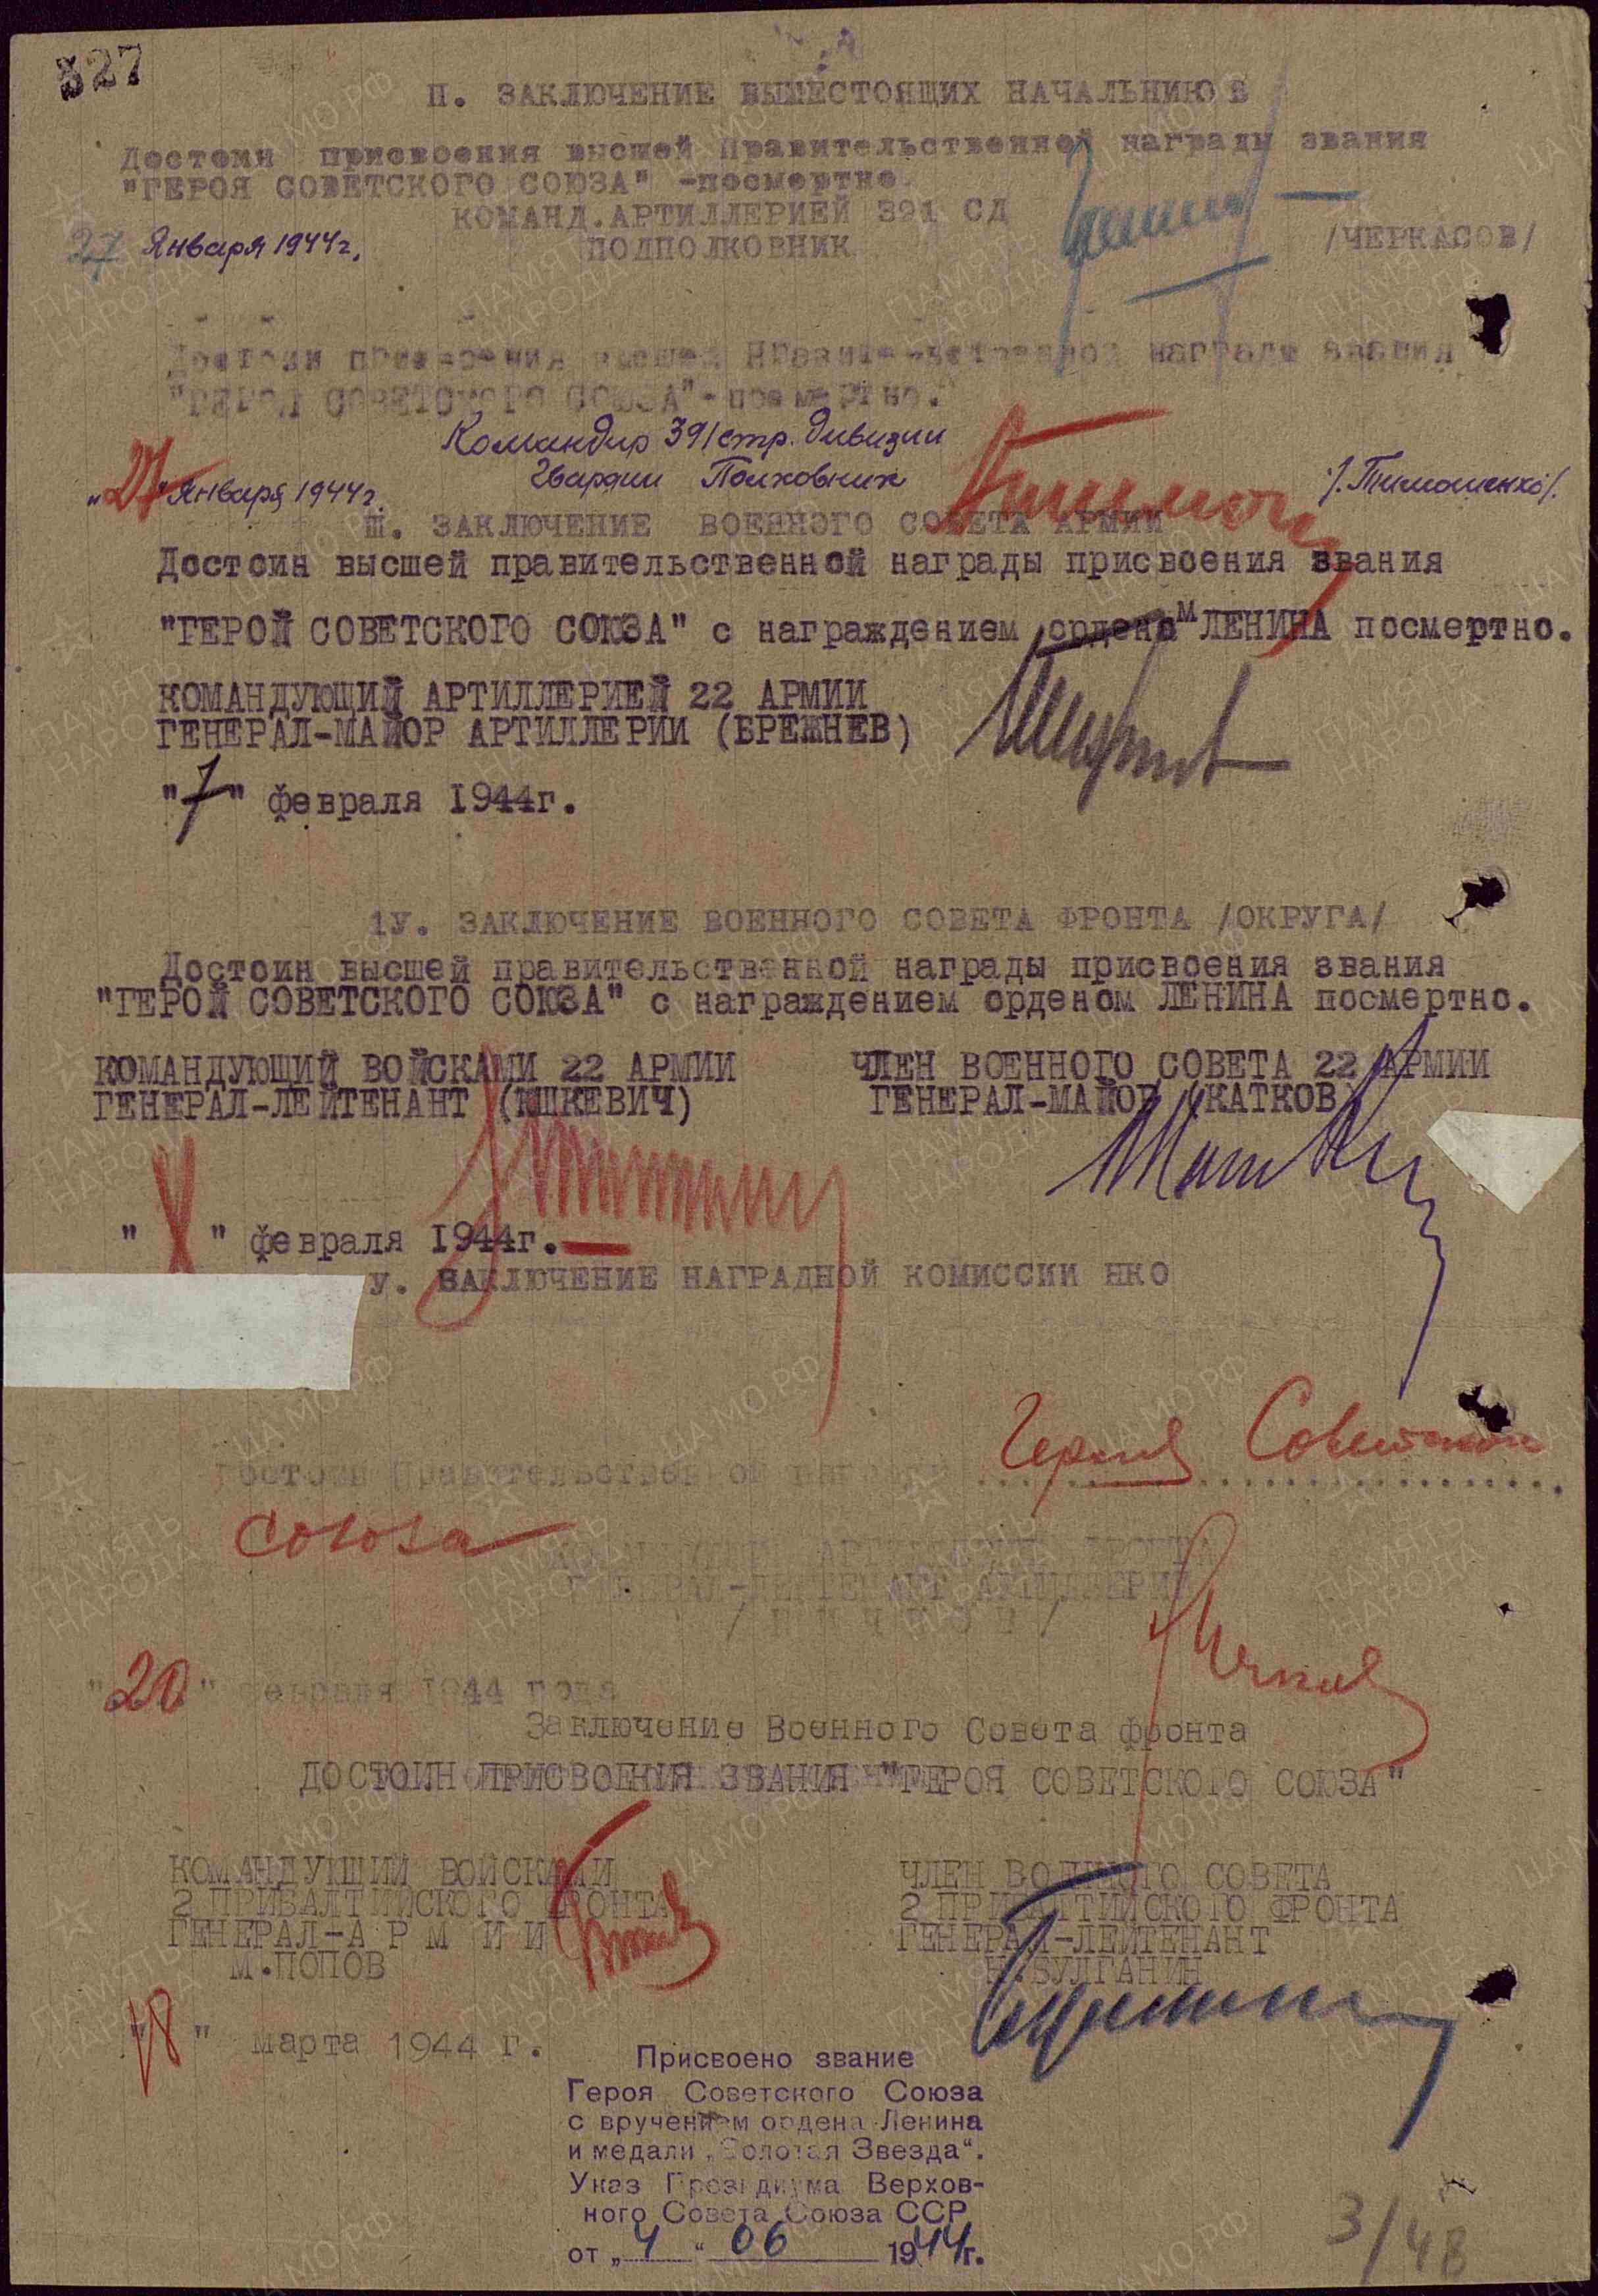 327
П. ЗАКЛЮЧЕНИЕ ВЫШЕСТОЯЩИХ НАЧАЛЬНИКОВ
Достоин присвоения высшей Правительственной награды звания
"ГЕРОЯ СОВЕТСКОГО СОЮЗА" -посмертно.
КОМАНД.АРТИЛЛЕРИЕЙ 391 СД
27 Января 1944г. ПОДПОЛКОВНИК /ЧЕРКАСОВ/
Достоин присвоения высшей Правительственной награды звания
"ГЕРОЯ СОВЕТСКОГО СОЮЗА"-посмертно.
Командир 391 стр. дивизии
"27" Января 1944г. Гвардии Полковник /.Тимошенко/.
Ш. ЗАКЛЮЧЕНИЕ ВОЕННОГО СОВЕТА АРМИИ
Достоин высшей правительственной награды присвоения звания
"ГЕРОЙ СОВЕТСКОГО СОЮЗА" с награждением орденом ЛЕНИНА посмертно.
КОМАНДУЮЩИЙ АРТИЛЛЕРИЕЙ 22 АРМИИ
ГЕНЕРАЛ-МАЙОР АРТИЛЛЕРИИ (БРЕЖНЕВ)
"7" февраля 1944г.
1У. ЗАКЛЮЧЕНИЕ ВОЕННОГО СОВЕТА ФРОНТА /ОКРУГА/
Достоин высшей правительственной награды присвоения звания
"ГЕРОЙ СОВЕТСКОГО СОЮЗА" с награждением орденом ЛЕНИНА посмертно.
КОМАНДУЮЩИЙ ВОЙСКАМИ 22 АРМИИ ЧЛЕН ВОЕННОГО СОВЕТА 22 АРМИИ
ГЕНЕРАЛ-ЛЕЙТЕНАНТ (ЮШКЕВИЧ) ГЕНЕРАЛ-МАЙОР (КАТКОВ)
" " февраля 1944г.
У. ЗАКЛЮЧЕНИЕ НАГРАДНОЙ КОМИССИИ НКО
Достоин Правительственной награды Героя Советского
союза
АРТИЛЛЕРИЕЙ ФРОНТА
ГЕНЕРАЛ-ЛЕЙТЕНАНТ АРТИЛЛЕРИИ
"20" февраля 1944 года
Заключение Военного Совета фронта
ДОСТОИН ПРИСВОЕНИЯ ЗВАНИЯ "ГЕРОЯ СОВЕТСКОГО СОЮЗА"
КОМАНДУЮЩИЙ ВОЙСКАМИ ЧЛЕН ВОЕННОГО СОВЕТА
2 ПРИБАЛТИЙСКОГО ФРОНТА 2 ПРИБАЛТИЙСКОГО ФРОНТА
ГЕНЕРАЛ-АРМИИ ГЕНЕРАЛ-ЛЕЙТЕНАНТ
М.ПОПОВ Н.БУЛГАНИН
"18" марта 1944 г.
Присвоено звание
Героя Советского Союза
с вручением ордена Ленина
и медали „Золотая Звезда“.
Указ Президиума Верхов-
ного Совета Союза ССР
от „4“ 06 1944г.
3/48